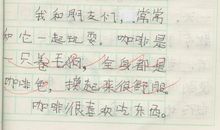 我和朋友们，常常
和它一起玩耍。咖啡是
一只卷毛狗，全身都是
咖啡色，摸起来很舒服
咖啡很喜欢吃东西。